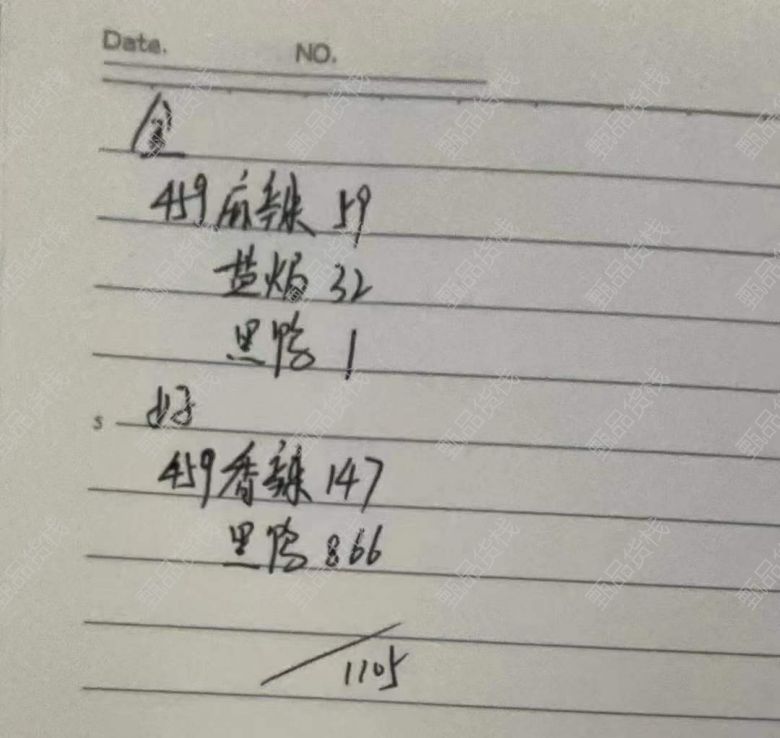 Date. NO.
459麻辣 59
盐焗 32
黑鸭 1
s 好
459香辣 147
黑鸭 866
1105
甄品货栈